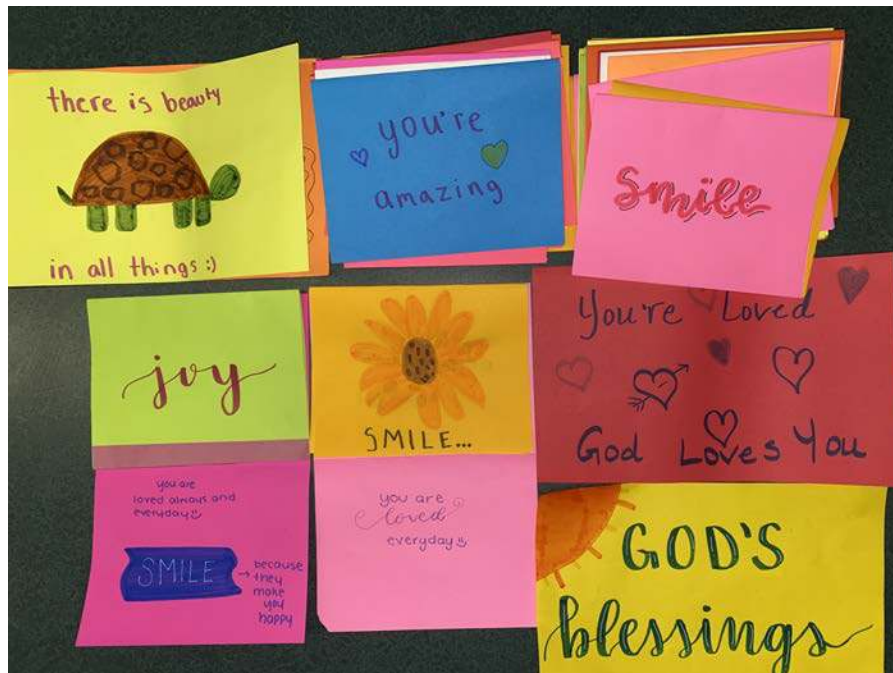 there is beauty
in all things :)
you're
amazing
smile
joy
SMILE...
You're Loved
God Loves You
you are
loved always and
everyday
SMILE → because
they
make
you
happy
you are
loved
everyday
GOD'S
blessings